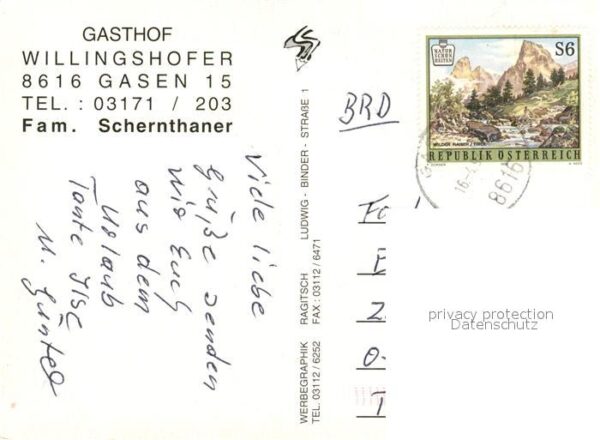 GASTHOF
WILLINGSHOFER
8616 GASEN 15
TEL. : 03171 / 203
Fam. Schernthaner
Viele liebe
Grüße senden
wir Euch
aus dem
Urlaub
Tante Ilse
u. Günter
WERBEGRAPHIK RAGITSCH LUDWIG - BINDER - STRAßE 1
TEL. 03112 / 6252 FAX : 03112 / 6471
BRD
NATUR
SCHÖN
HEITEN
S6
WILDER KAISER / TIROL
REPUBLIK ÖSTERREICH
8616
privacy protection
Datenschutz